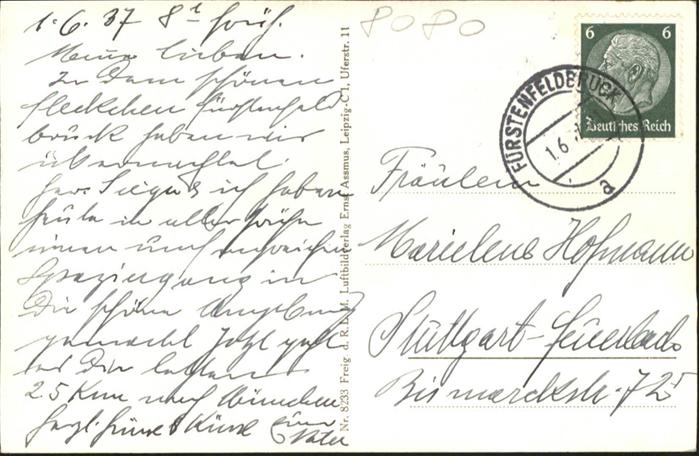 1.6.37 8t früh.
Meine Lieben.
In dem schönen
Fleckchen Fürstenfeld
bruck haben wir
übernachtet.
ich haben
heute in aller Frühe
einen umfangreichen
Spaziergang in
die schöne Umgebung
gemacht Jetzt geht
es die letzten
25 Km nach München
Herzl. Grüsse & Küsse Euer
Vater
Nr. 8233 Freig d. R.L.M. Luftbildverlag Ernst Assmus, Leipzig-C1, Uferstr. 11
8080
6 6
Deutsches Reich
FÜRSTENFELDBRUCK
1.6.
a
Fräulein
Marielene Hofmann
Stuttgart-Feuerbach
Bismarckstr. 725